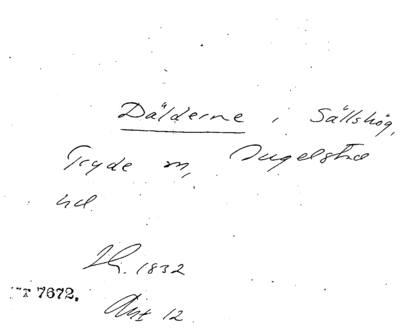 Dälderne i Sällshög,
Tryde m, Ingelstad
hd.
1832
T 7672.
Ant 12